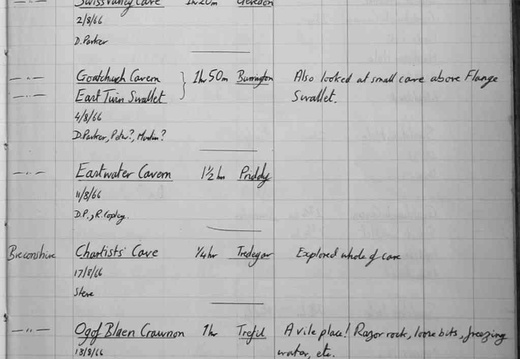 —"— Swiss Valley Cave 1h 20m Goredon
2/8/66
D. Parker
—"— Goatchurch Cavern 1hr 50m Burrington Also looked at small cave above Flange
—"— East Twin Swallet Swallet.
4/8/66
D. Parker, Pete?, Martin?
—"— Eastwater Cavern 1½ hr Priddy
11/8/66
D.P., R. Copley.
Breconshire Chartists' Cave ¼ hr Tredegar Explored whole of cave
17/8/66
Steve
—"— Ogof Blaen Crawnon 1hr Trefil A vile place! Razor rock, loose bits, freezing
18/8/66 water, etc.